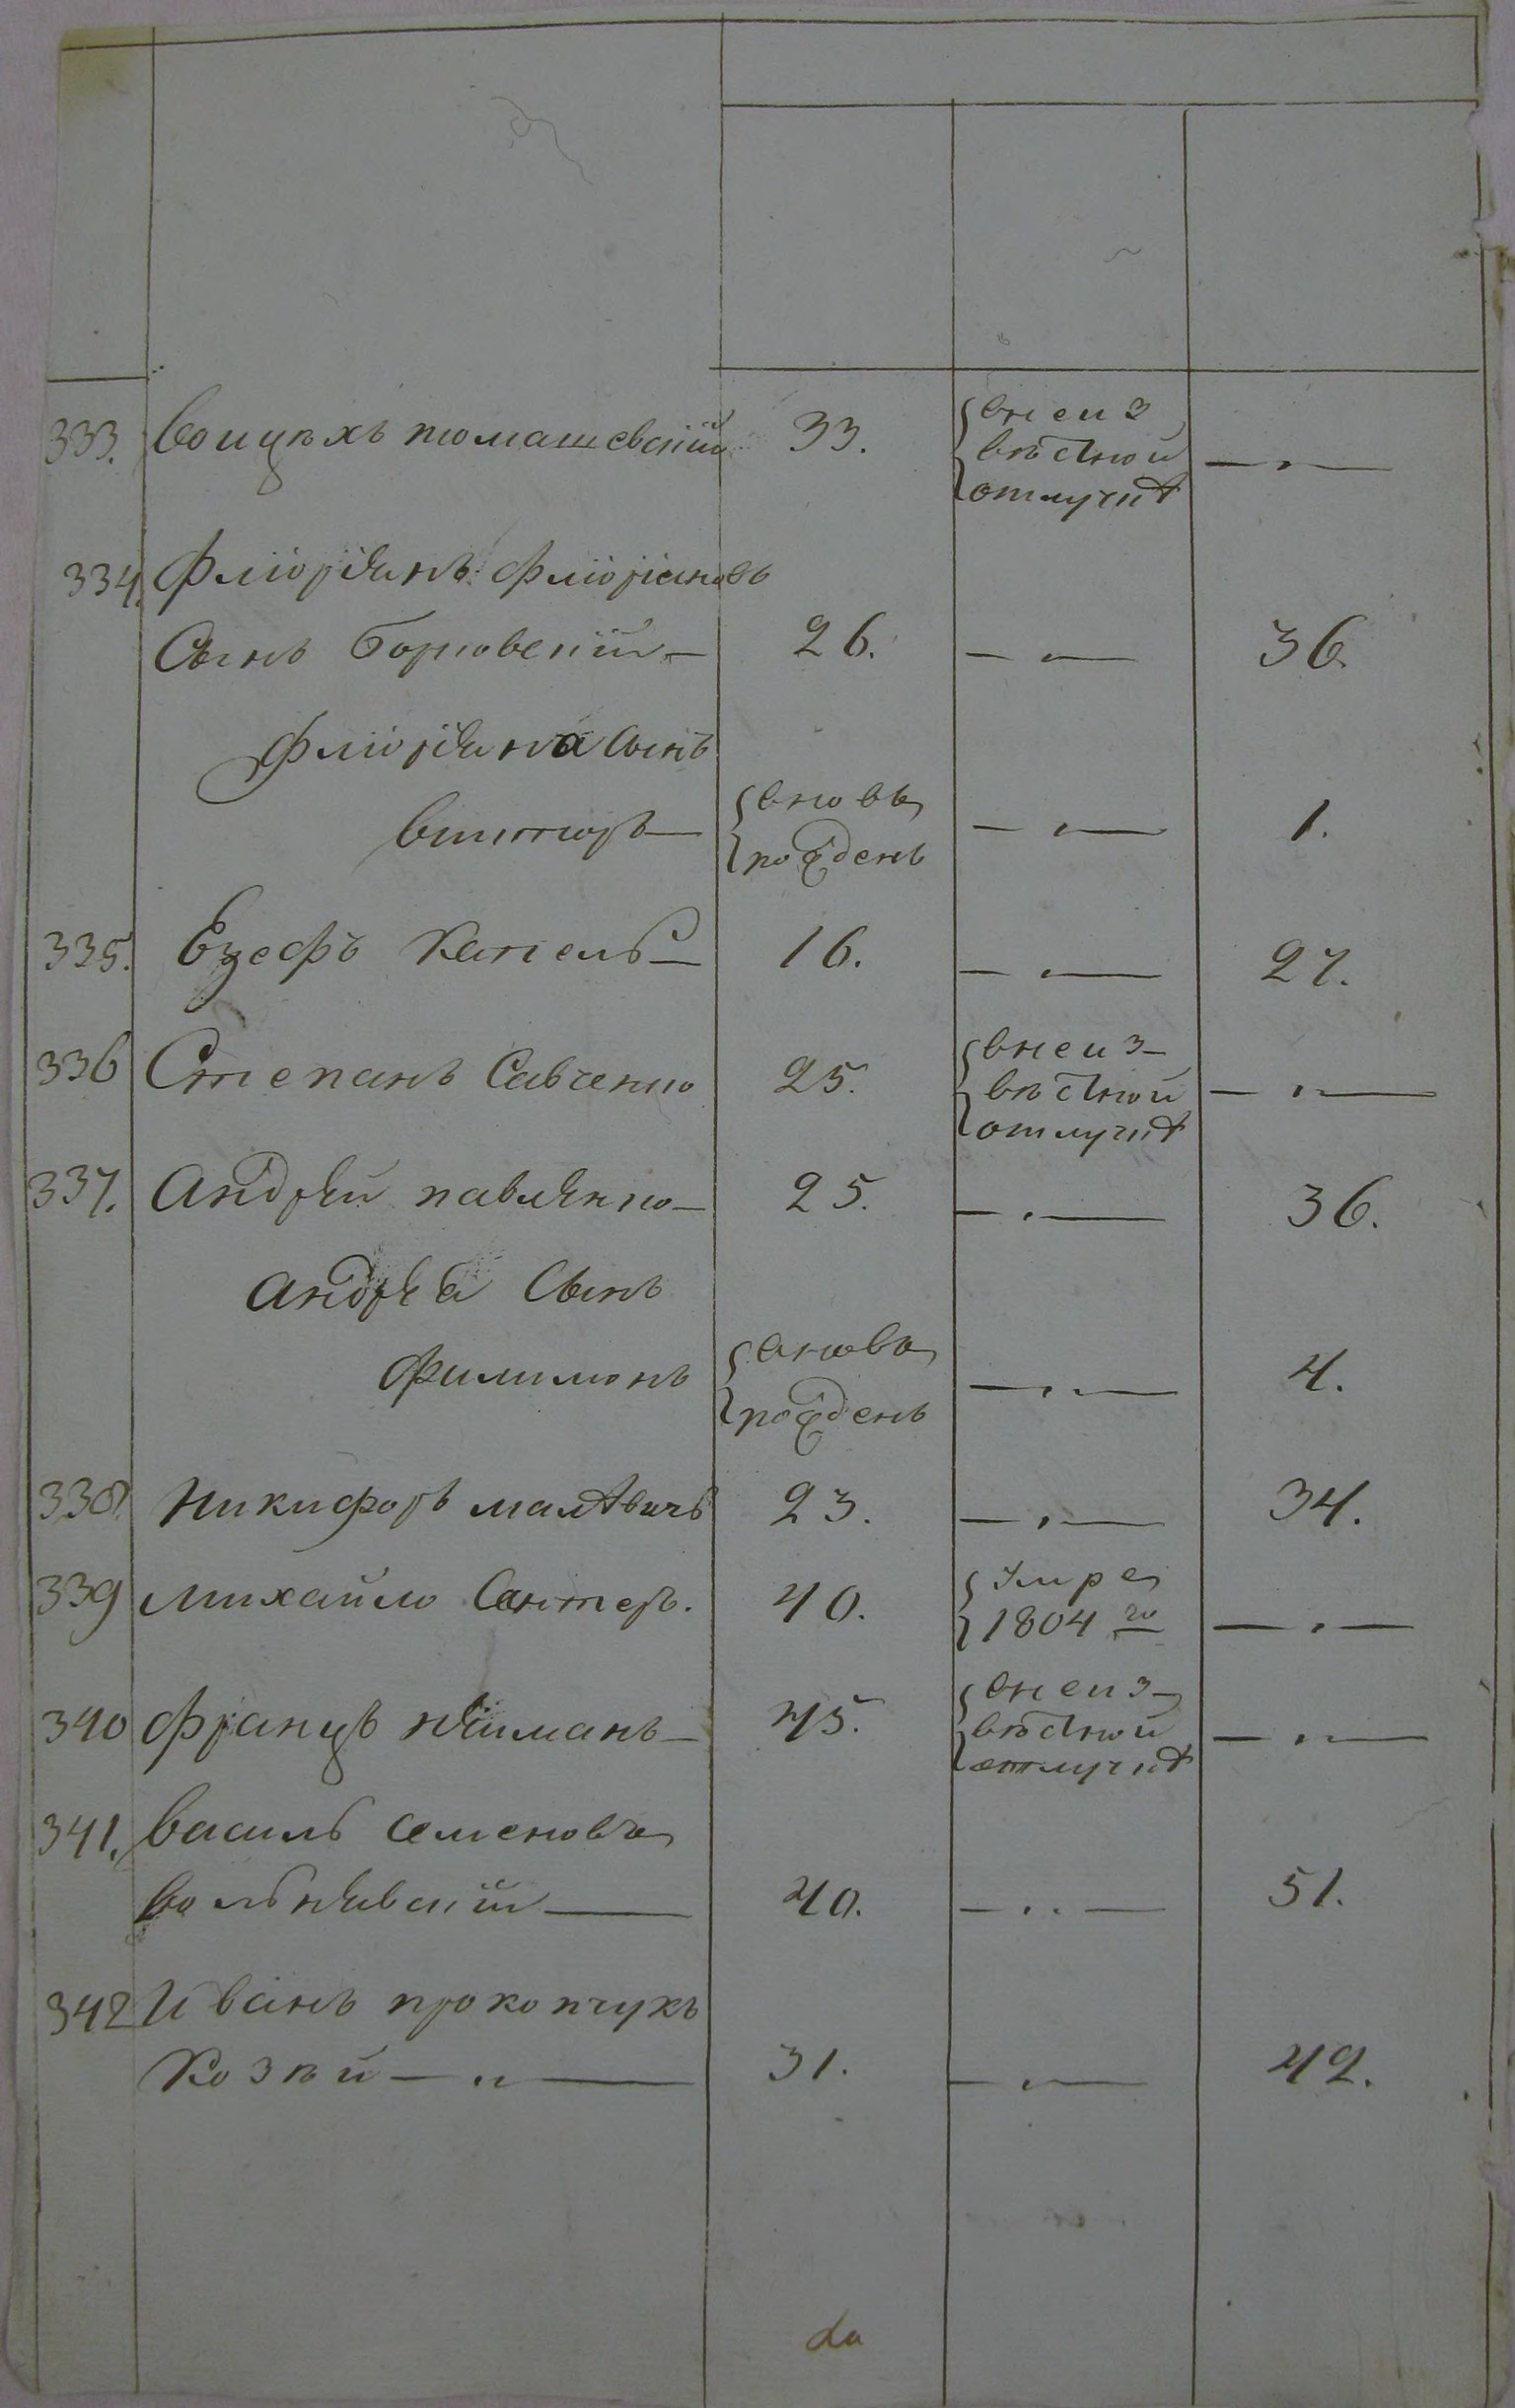 333. воицѣхъ томашевскїй 33. внеиз
вѣстной
отлучкѣ — . —
334. Флїорїанъ флїорїановъ
Сынъ Борковскїй — 26. — . — 36.
флїорїана Сынъ
викторъ — вновь
рожденъ — . — 1.
335. Езефъ Капель — 16. — . — 27.
336 Степанъ Савченко 25. внеиз-
вѣстной
отлучкѣ — . —
337. андрей павленко — 25. — . — 36.
андрея Сынъ
Филимонъ вновь
рожденъ — . — 4.
338. Никифоръ 23. — . — 34.
339 михайло 40. Умре
1804 го — . —
340 францъ нейманъ — 45. внеиз-
вѣстной
отлучкѣ — . —
341. василь Семеновъ
40. — . . — 51.
342 Иванъ прокопчукъ
Козѣй — . — 31. — . — 42.